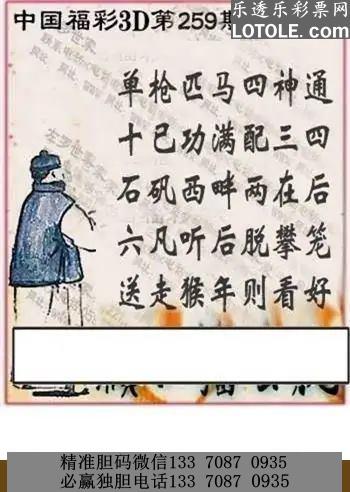 乐透乐彩票网
LOTOLE.COM
中国福彩3D第259期
单枪匹马四神通
十已功满配三四
石矶西畔两在后
六凡听后脱攀笼
送走猴年则看好
精准胆码微信133 7087 0935
必赢独胆电话133 7087 0935